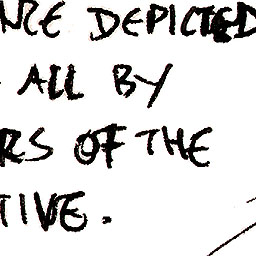 NCE DEPICTED
ALL BY
RS OF THE
TIVE.